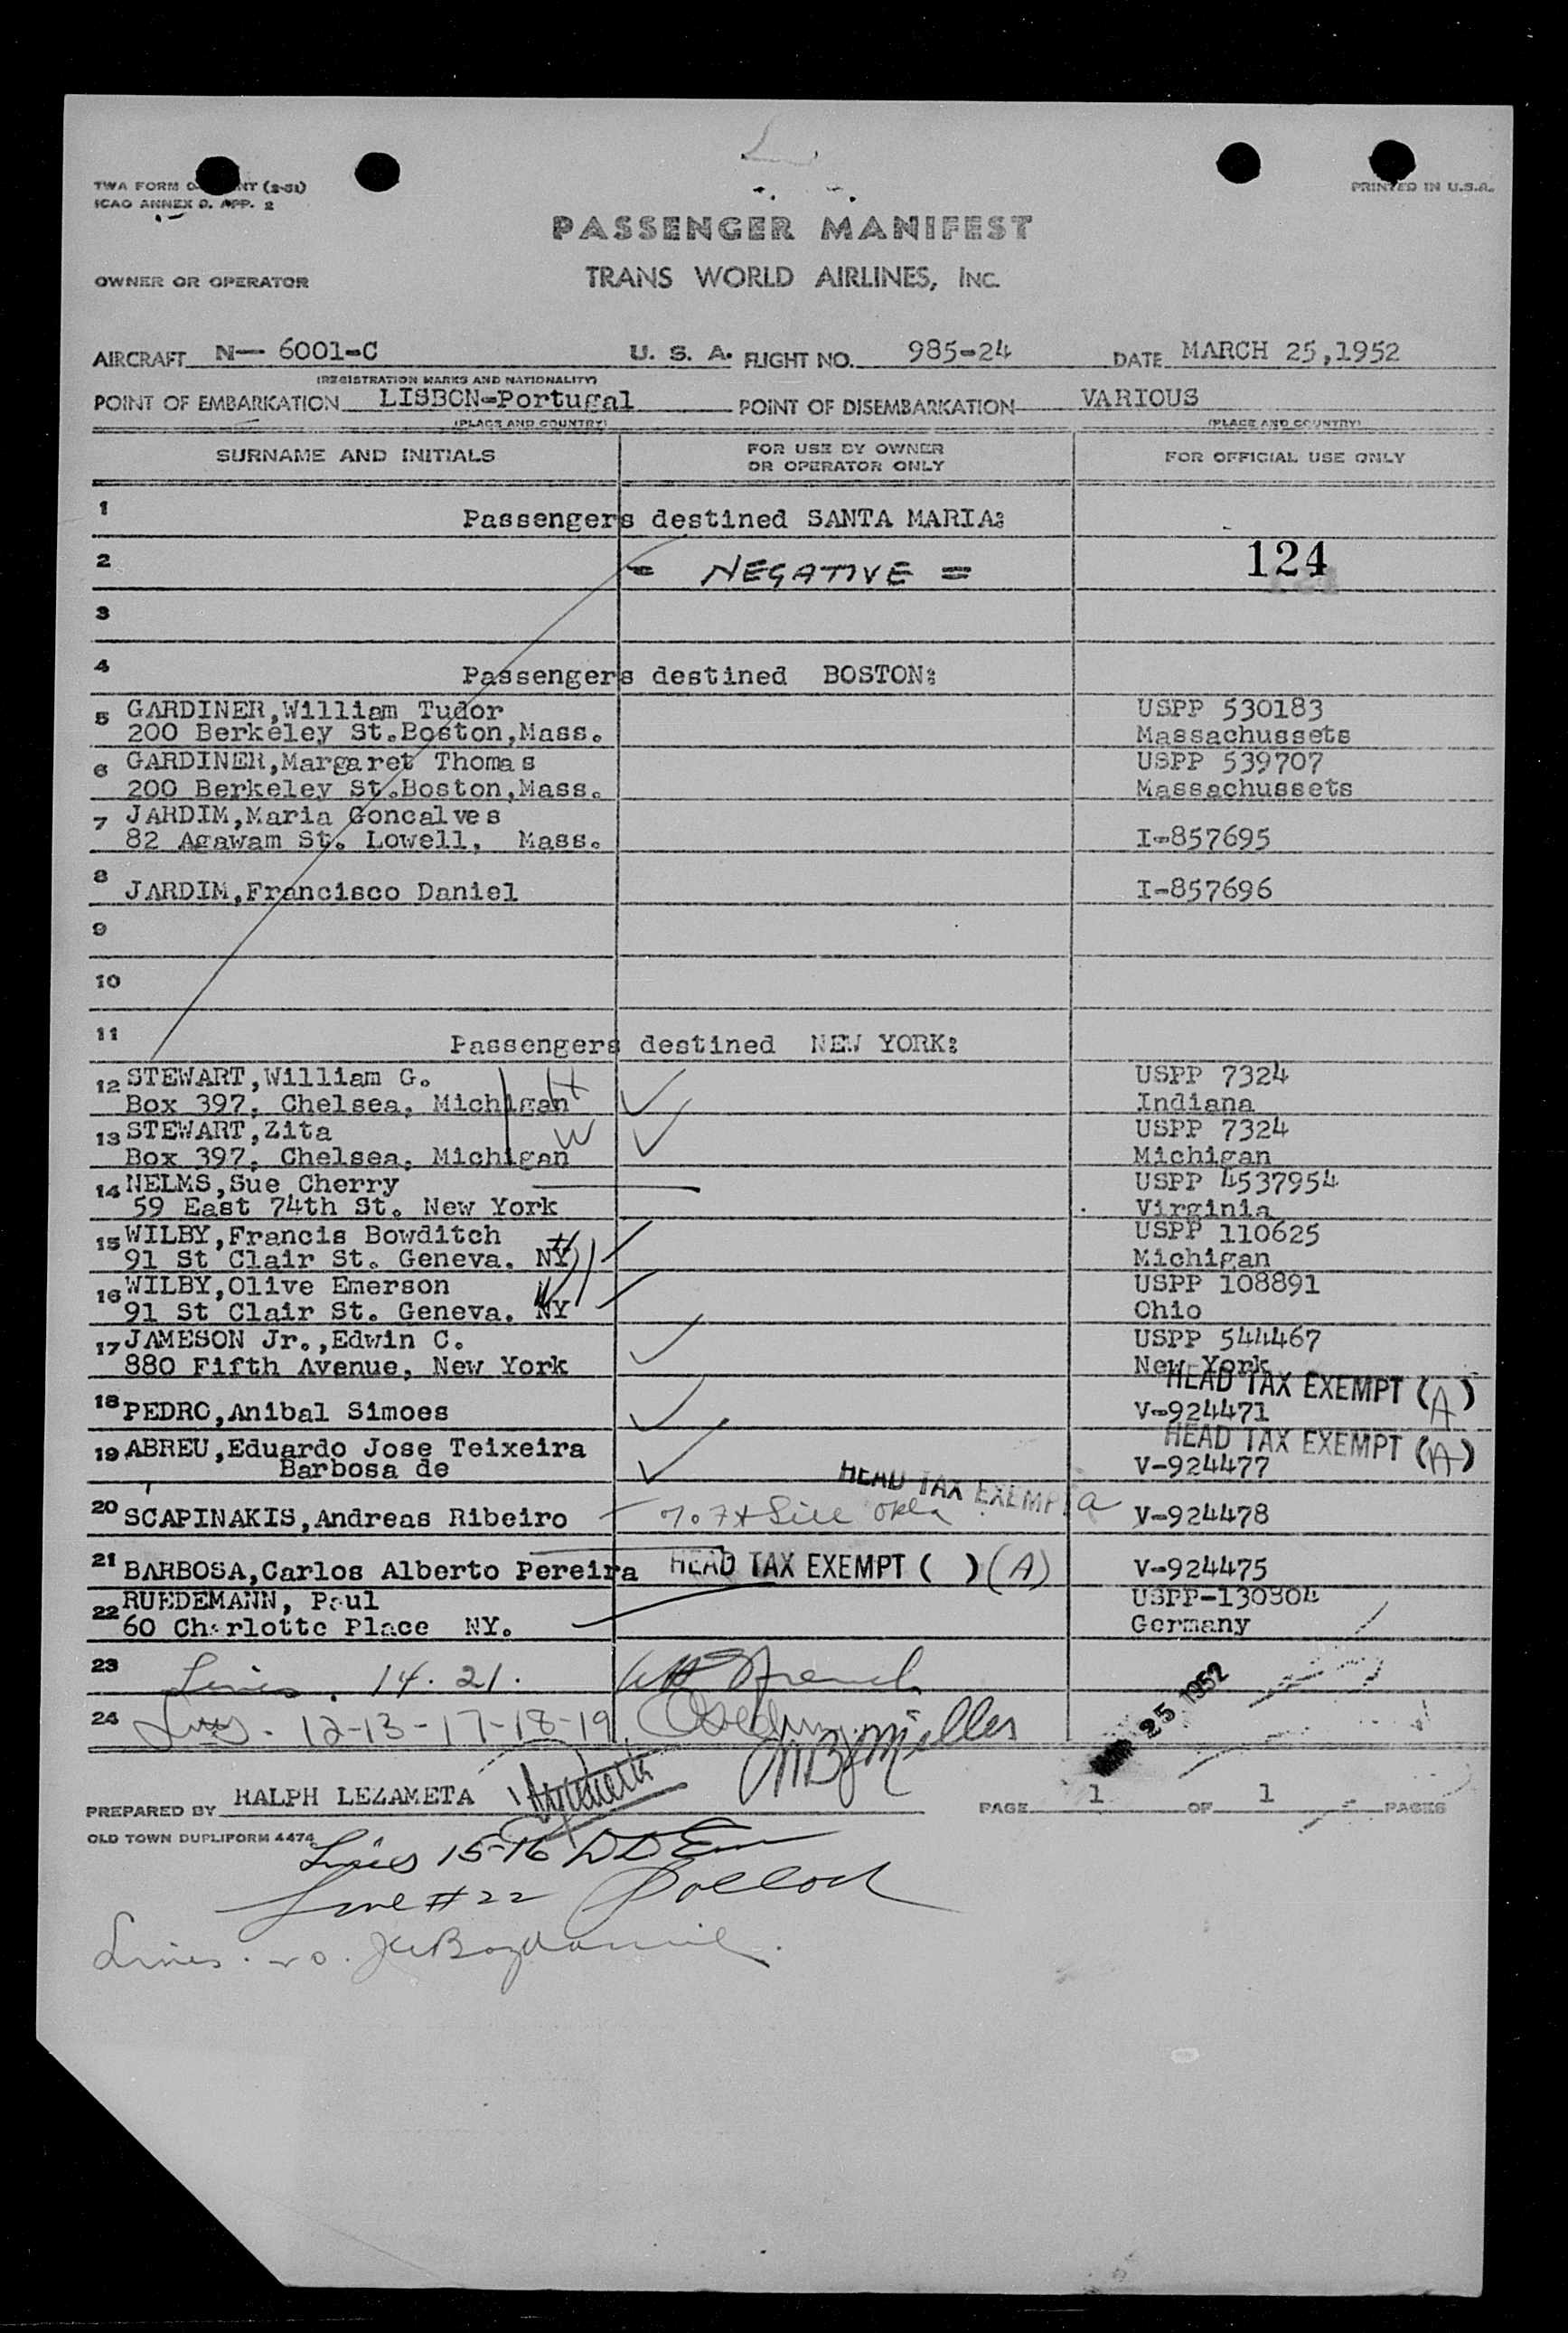 TWA FORM O NT (2-51)
ICAO ANNEX 9. APP. 2
PRINTED IN U.S.A.
PASSENGER MANIFEST
OWNER OR OPERATOR
TRANS WORLD AIRLINES, INC.
AIRCRAFT N— 6001-C U. S. A. FLIGHT NO. 985-24 DATE MARCH 25,1952
(REGISTRATION MARKS AND NATIONALITY)
POINT OF EMBARKATION LISBON-Portugal POINT OF DISEMBARKATION VARIOUS
(PLACE AND COUNTRY) (PLACE AND COUNTRY)
SURNAME AND INITIALS
FOR USE BY OWNER
OR OPERATOR ONLY
FOR OFFICIAL USE ONLY
1 Passengers destined SANTA MARIA:
2 = NEGATIVE = 124
3
4 Passengers destined BOSTON:
5 GARDINER,William Tudor USPP 530183
200 Berkeley St.Boston,Mass. Massachussets
6 GARDINER,Margaret Thomas USPP 539707
200 Berkeley St.Boston,Mass. Massachussets
7 JARDIM,Maria Goncalves
82 Agawam St. Lowell, Mass. I-857695
8 JARDIM,Francisco Daniel I-857696
9
10
11 Passengers destined NEW YORK:
12 STEWART,William G. H USPP 7324
Box 397, Chelsea, Michigan Indiana
13 STEWART,Zita W USPP 7324
Box 397, Chelsea, Michigan Michigan
14 NELMS,Sue Cherry USPP 4537954
59 East 74th St. New York Virginia
15 WILBY,Francis Bowditch H USPP 110625
91 St Clair St. Geneva. NY Michigan
16 WILBY,Olive Emerson W USPP 108891
91 St Clair St. Geneva. NY Ohio
17 JAMESON Jr.,Edwin C. USPP 544467
880 Fifth Avenue, New York New York
HEAD TAX EXEMPT (A)
18 PEDRO,Anibal Simoes V-924471
HEAD TAX EXEMPT (A)
19 ABREU,Eduardo Jose Teixeira
Barbosa de V-924477
HEAD TAX EXEMP a
20 SCAPINAKIS,Andreas Ribeiro Ft Sill Okla V-924478
21 BARBOSA,Carlos Alberto Pereira HEAD TAX EXEMPT ( ) (A) V-924475
22 RUEDEMANN, Paul USPP-130804
60 Charlotte Place NY. Germany
23 Lines. 14. 21. French
24 Lines. 12-13-17-18-19
Miller
25 1952
PREPARED BY RALPH LEZAMETA PAGE 1 OF 1 PAGES
OLD TOWN DUPLIFORM 4474
Lines 15-16
Line #22 Pollock
Lines. 20.